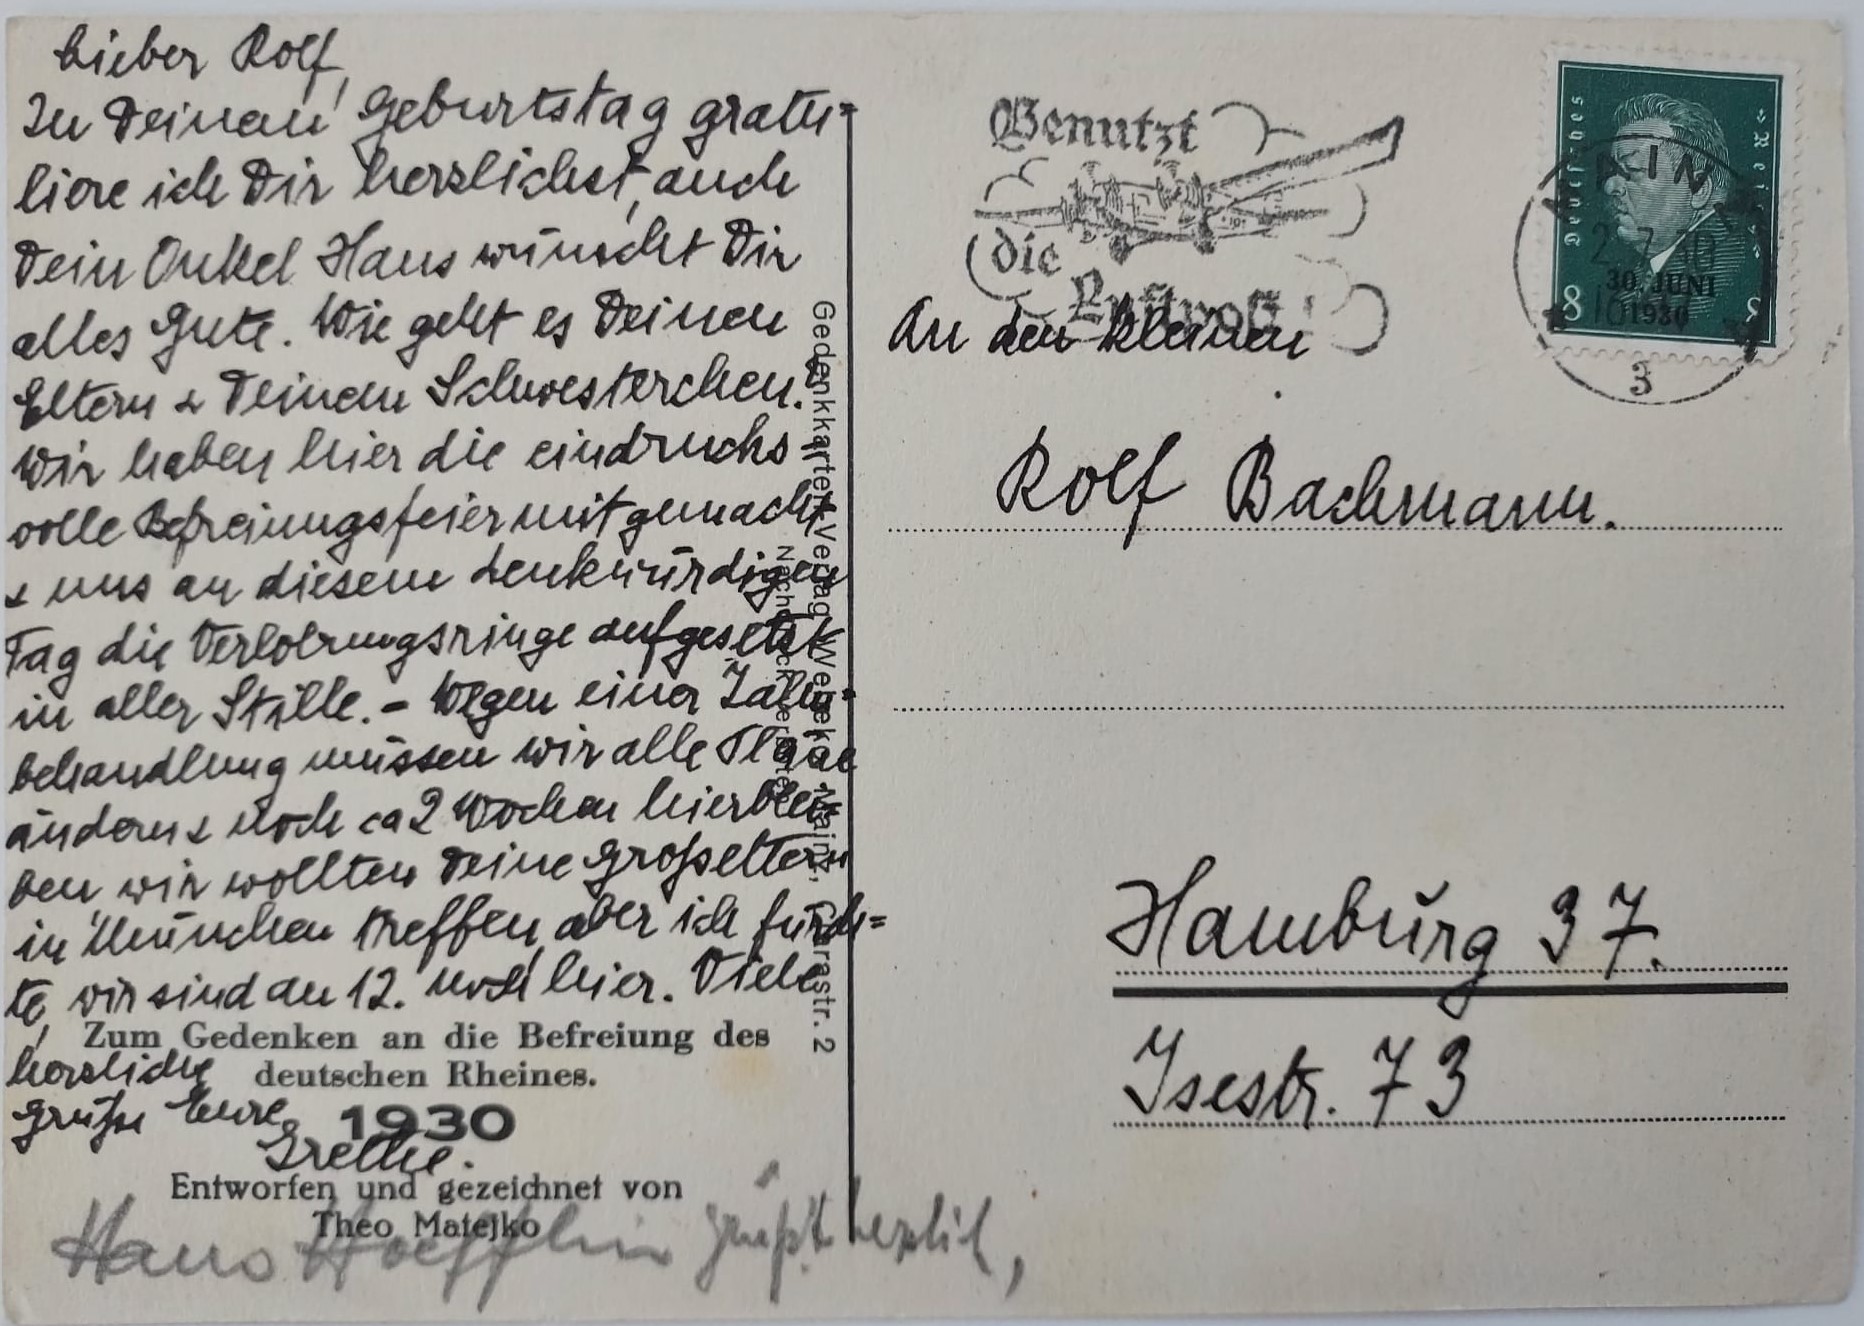 Lieber Rolf,
Zu Deinem Geburtstag gratu=
liere ich Dir herzlichst, auch
Dein Onkel Hans wünscht Dir
alles Gute. Wie geht es Deinen
Eltern & Deinem Schwesterchen.
Wir haben hier die eindrucks-
volle Befreiungsfeier mitgemacht
& uns an diesem denkwürdigen
Tag die Verlobungsringe aufgesetzt
in aller Stille. – Wegen einer Zahn=
behandlung müssen wir alle Pläne
ändern & noch ca 2 Wochen hierblei-
ben, wir wollten Deine Großeltern
in München treffen, aber ich fürch=
te, wir sind am 12. noch hier. Viele
herzliche
Grüße Eure
Grethe.
Hans Hoefflin grüßt herzlich,
Zum Gedenken an die Befreiung des
deutschen Rheines.
1930
Entworfen und gezeichnet von
Theo Matejko
Gedenkkarten-Verlag Mainz, Clarastr. 2
Nachdruck verboten
Benutzt
die
Luftpost!
Deutsches Reich
8 8
30. JUNI
1930
MAINZ
2.7.30
3
An den kleinen
Rolf Bachmann.
Hamburg 37.
Isestr. 73